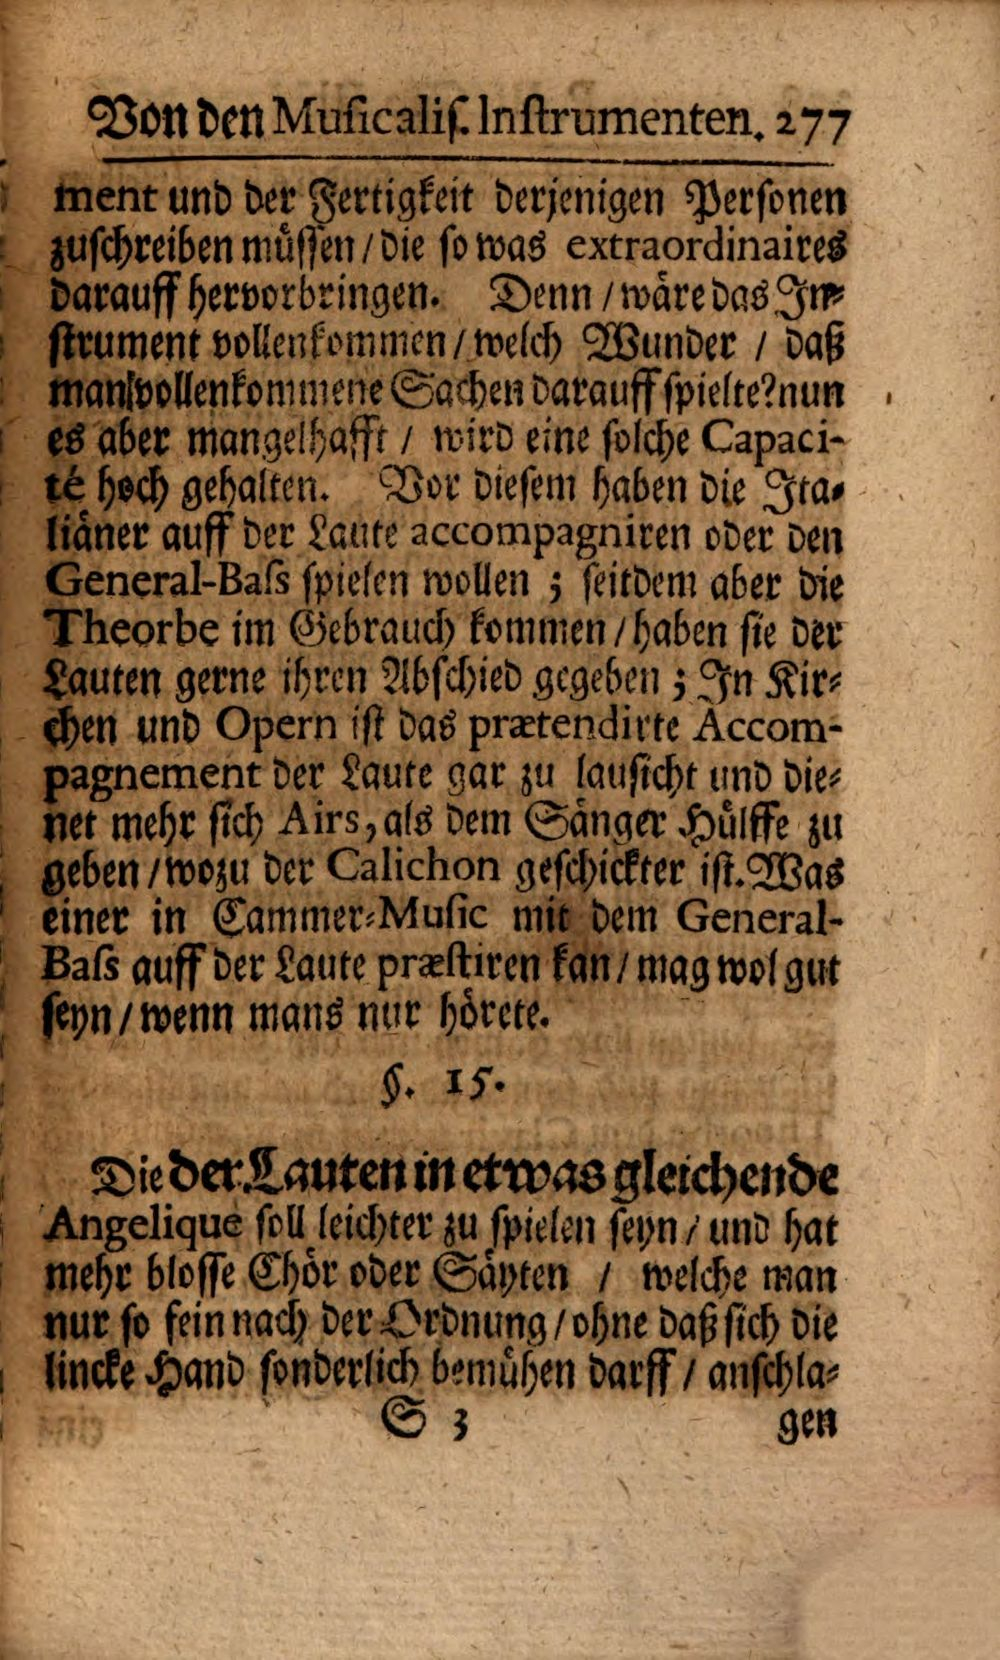 Von den Muſicaliſ. Inſtrumenten. 277
ment und der Fertigkeit derjenigen Perſonen
zuſchreiben muͤſſen / die ſo was extraordinaires
darauff hervorbringen. Denn / waͤre das In⸗
ſtrument vollenkommen / welch Wunder / daß
man vollenkommene Sachen darauff ſpielte? nun
es aber mangelhafft / wird eine ſolche Capaci-
té hoch gehalten. Vor dieſem haben die Ita⸗
liaͤner auff der Laute accompagniren oder den
General-Baſs ſpielen wollen ; ſeitdem aber die
Theorbe im Gebrauch kommen / haben ſie der
Lauten gerne ihren Abſchied gegeben ; In Kir⸗
chen und Opern iſt das prætendirte Accom-
pagnement der Laute gar zu lauſicht und die⸗
net mehr ſich Airs, als dem Saͤnger Huͤlffe zu
geben / wozu der Calichon geſchickter iſt. Was
einer in Cammer⸗Muſic mit dem General-
Baſs auff der Laute præſtiren kan / mag wol gut
ſeyn / wenn mans nur hoͤrete.
§. 15.
Die der Lauten in etwas gleichende
Angelique ſoll leichter zu ſpielen ſeyn / und hat
mehr bloſſe Choͤr oder Saͤyten / welche man
nur ſo fein nach der Ordnung / ohne daß ſich die
lincke Hand ſonderlich bemuͤhen darff / anſchla⸗
S 3 gen